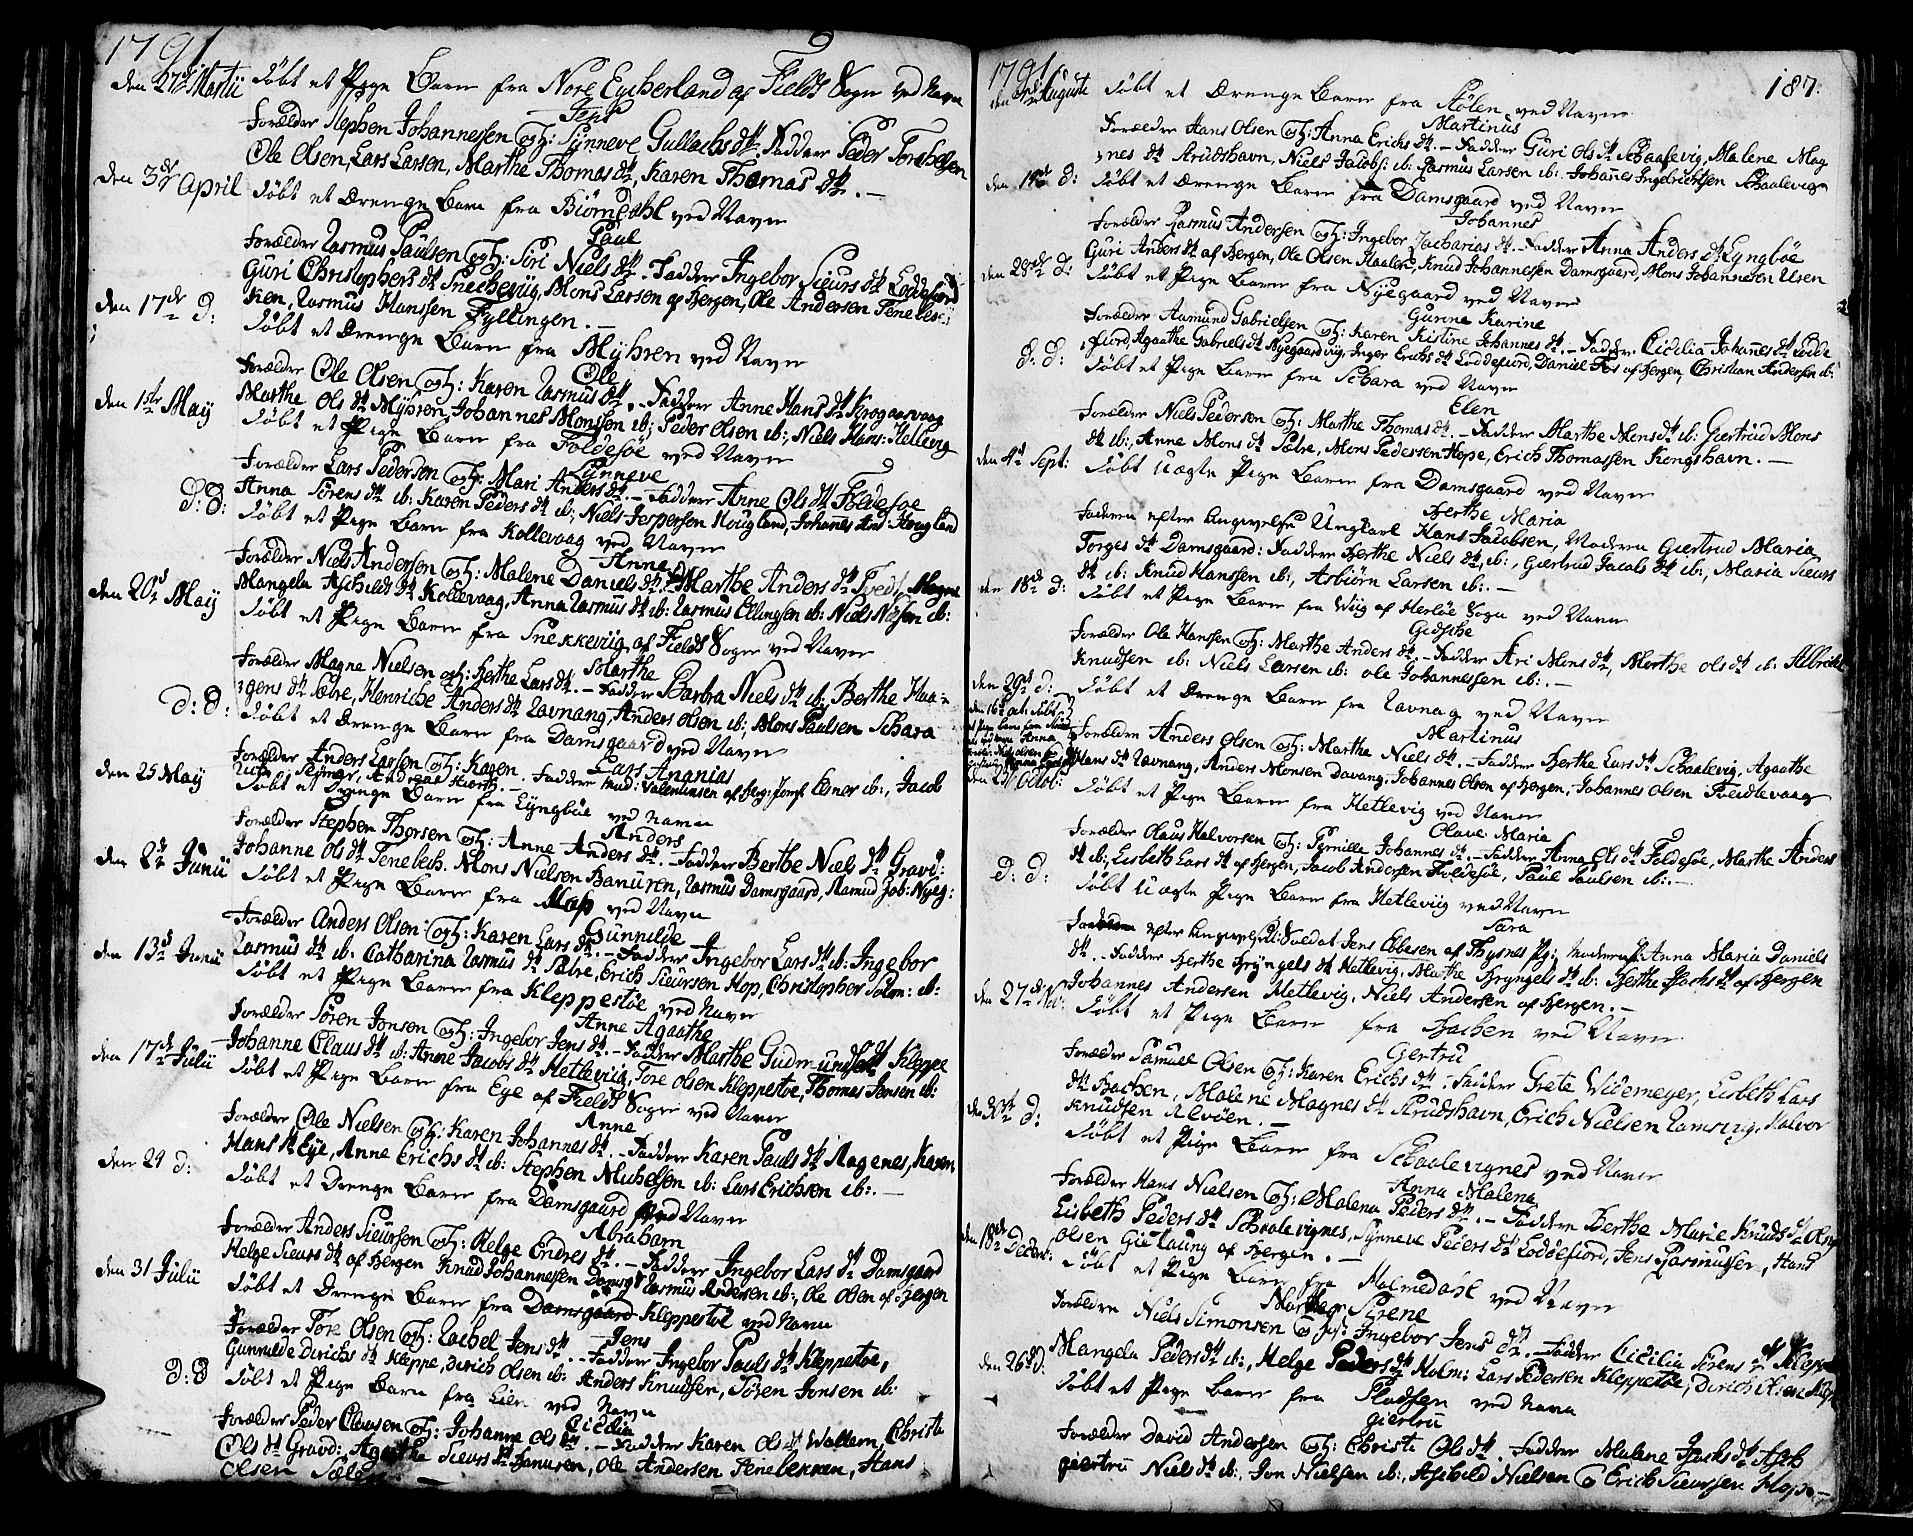 1791
den 27de Martii Døbt et Pige Barn fra Nore Eycherland af Fields Sogn ved Navn
Forælder Stephen Johannessen og H: Synneve Gullachs dtr. Fadder Peder Torchelsen
Ole Olsen, Lars Larsen, Marthe Thomas dtr, Karen Thomas dtr. –
den 3de April Døbt et Drenge Barn fra Biørndahl ved Navn
Paul
Forælder Rasmus Paulsen og H: Siri Niels dtr. – Fadder Ingebor Sieurs dtr Loddefiord
Guri Christophers dtr Snechevig, Mons Larsen af Bergen, Ole Andersen Tenebec
ken, Rasmus Hanssen Fyllingen. –
den 17de d: Døbt et Drenge Barn fra Myhren ved Navn
Ole
Forælder Ole Olsen og H: Karen Rasmus dtr. – Fadder Anne Hans dtr Krogaasvaag
Marthe Ols dtr Myhren, Johannes Monssen ib:, Peder Olsen ib:, Niels Hans: Hellevig
den 1ste May Døbt et Pige Barn fra Foldesøe ved Navn
Synneve
Forælder Lars Pedersen og H: Mari Anders dtr. – Fadder Anne Ols dtr Foldesøe
Anna Sørens dtr ib: Karen Peders dtr ib:, Niels Jespersen Hougland, Johannes And: Hougland
d: d: Døbt et Pige Barn fra Kollevaag ved Navn
Anne
Forælder Niels Andersen og H: Malene Daniels dtr. – Marthe Anders dtr Tvedt, Magne
Mangela Aschilds dtr Kollevaag, Anna Rasmus dtr ib: Rasmus Ellingsen ib: Niels Nilsen ib:
den 20de May Døbt et Pige Barn fra Snekkeviig af Fields Sogn ved Navn
Marthe
Forælder Magne Nielsen og H: Berthe Lars dtr. – Fadder Barbra Niels dtr ib:, Berthe Haa=
gens dtr Sælre, Henriche Anders dtr Ravnang, Anders Olsen ib:, Mons Paulsen Schara
d: d: Døbt et Drenge Barn fra Damsgaard ved Navn
Lars Ananias
Forælder Anders Larsen og H: Karen. Fadder Mad: Valentinsen af Berg: Jomf Elsner ib:, Jacob
den 25 May Døbt et Drenge Barn fra Lyngbøe ved Navn
Anders
Forælder Stephen Thorsen og H: Anne Anders dtr. – Fadder Berthe Niels dtr Gravd:
Johanne Ols dtr Tenebech. Mons Nielsen Banuren, Rasmus Damsgaard, Aamud Jab: Nyeg:
den 2de Junii Døbt et Pige Barn fra Hop ved Navn
Gunnilde
Forælder Anders Olsen og H: Karen Lars dtr. – Fadder Ingebor Lars dtr ib: Ingebor
Rasmus dtr ib: Catharina Rasmus dtr Sælre, Erich Sieursen Hop, Christopher Salm: ib:
den 13de Junii Døbt et Pige Barn fra Kleppestøe ved Navn
Anne Agaathe
Forælder Søren Jonsen og H: Ingebor Jens dtr. – Fadder Marthe Gudmunds dtr Kleppe
Johanne Claus dtr ib: Anne Jacobs dtr Hetleviig, Tore Olsen Kleppestøe, Thomas Jonsen ib:
den 17de Julii Døbt et Pige Barn fra Eye af Fields Sogn ved Navn
Anne
Forælder Ole Nielsen og H: Karen Johannes dtr. – Fadder Karen Pauls dtr Aagenes, Karen
Hans dtr Eye, Anne Erichs dtr ib: Stephen Michelsen ib: Lars Erichsen ib:. –
den 29 d: Døbt et Drenge Barn fra Damsgaard ved Navn
Abraham
Forælder Anders Sieursen og H: Helge Endres dtr. – Fadder Ingebor Lars dtr Damsgaard
Helge Sieurs dtr af Bergen Knud Johannessen Damsg: Rasmus Andersen ib:, Ole Olsen af Bergen
den 31 Julii Døbt et Drenge Barn fra Damsgaard Kleppestøe ved Navn
Jens
Forælder Tore Olsen og H: Rachel Jens dtr. – Fadder Ingebor Pauls dtr Kleppestøe,
Gunnilde Dirichs dtr Kleppe, Dirich Olsen ib: Anders Knudsen, Søren Jonsen ib:
d: d Døbt et Pige Barn fra Lien ved Navn
Cicilia
Forælder Peder Clausen og H: Johanne Ols dtr. – Fadder Karen Ols dtr Wallem, Christi
Ols dtr Gravd: Agaathe Sieurs dtr Banuren, Ole Andersen Tenebekken, Hans
Olsen Sælre –
1791 187:
Auguste Døbt et Drenge Barn fra Stølen ved Navn
Martinus
Forælder Hans Olsen og H: Anna Erichs dtr. – Fadder Guri Ols dtr Schaalevig, Malene Mag
nes dtr Strudshavn, Niels Jacobs: ib: Rasmus Larsen ib: Johannes Ingebrichtsen Schaalevig
den 19de d: Døbt et Drenge Barn fra Damsgaard ved Navn
Johannes
Forælder Rasmus Andersen og H: Ingebor Zacharias dtr. – Fadder Anna Anders dtr Lyngbøe
Guri Anders dtr af Bergen, Ole Olsen Haalen, Knud Johannessen Damsgaard, Mons Johannesen Uren
den 28de d: Døbt et Pige Barn fra Nyegaard ved Navn
Gurine Karine
Forælder Aamund Gabrielsen og H: Karen Kristine Johannes dtr. – Fadder Cicilia Johannes dtr Lodde
fiord, Agaathe Gabriels dtr Nyegaardviig, Inger Erichs dtr Loddefiord, Daniel Fos af Bergen, Christian Andersen ib:
d: d: Døbt et Pige Barn fra Schara ved Navn
Elen
Forælder Niels Pedersen og H: Marthe Thomas dtr. – Fadder Marthe Mons dtr ib: Giertrud Mons
dtr ib:, Anne Mons dtr Sælre, Mons Pedersen Hope, Erich Thomassen Kongshavn. –
den 4de Sept: Døbt Uægte Pige Barn fra Damsgaard ved Navn
Berthe Maria
Faderen efter Angivelse Ungkarl Hans Jacobsen, Moderen Giertrud Maria
Torges dtr Damsgaard: Fadder Berthe Niels dtr ib:, Giertrud Jacobs dtr ib:, Maria Sieurs
dtr ib: Knud Hanssen ib:, Asbiørn Larsen ib:. –
den 18de d: Døbt et Pige Barn fra Wiig af Herløe Sogn ved Navn
Gidsche
Forælder Ole Hanssen og H: Marthe Anders dtr. – Fadder Ari Mons dtr, Marthe Ols dtr ib: Albrict
Knudsen ib: Niels Larsen ib: Ole Johannessen ib:. –
den 29de d: Døbt et Drenge Barn fra Ravnag ved Navn
Martinus
den 16de octr: Døbt
Forælder Anders Olsen og H: Marthe Niels dtr. – Fadder Berthe Lars dtr Schaalevig, Agaathe
Hans dtr Ravnang, Anders Monsen Davang, Johannes Olsen af Bergen, Johannes Olsen Treidlevaag
Octob: Døbt et Pige Barn fra Hetlevig ved Navn
Olave Maria
Forælder Claus Halvorsen og H: Pernille Johannes dtr. – Fadder Anna Ols dtr Foldesøe, Marthe Anders
dtr ib:, Lisbeth Lars dtr af Bergen, Jacob Andersen Foldesøe, Paul Paulsen ib:. –
d: d: Døbt Uægte Pige Barn fra Hetleviig ved Navn
Sara
efter Angivelse: Soldat Jens Ebbesen af Thysnes Pg: Moder P: Anna Maria Daniels
dtr. – Fadder Berthe Bryngels dtr Hetlevig, Marthe Bryngels dtr ib: Berthe Isachs dtr af Bergen
Johannes Andersen Hetlevig, Niels Andersen af Bergen. –
den 27de Nov: Døbt et Pige Barn fra Bachen ved Navn
Gertru
Forælder Samuel Olsen og H: Karen Erichs dtr. – Fadder Grete Widemeyer, Lisbeth Lars
dtr Bachen, Malene Magnes dtr Strudshavn, Erich Nielsen Ramsvig, Halvor
Knudsen Alvøen. –
d: Døbt et Pige Barn fra Schaalevignes ved Navn
Anna Malena
Forælder Hans Nielsen og H: Malena Peders dtr. – Fadder Berthe Marie Knuds dtr
Lisbeth Peders dtr Schaalevignes, Synneve Peders dtr Loddefiord, Jens Rasmussen, Hans
Olsen Gietaung af Bergen. –
den 18de Decbr: Døbt et Pige Barn fra Holmedahl ved Navn
Marthe Sirene
Forældre Niels Simonsen og H: Ingebor Jens dtr. – Fadder Cicilia Sørens dtr Kleppe
Mangela Peders dtr ib:, Helge Peders dtr Holm: Lars Pedersen Kleppestøe, Dirich Olsen Klep
den 26de d: Døbt et Pige Barn fra Pladsen ved Navn
Giertru
Forælder David Andersen og H: Christi Ols dtr. Fadder Malene Isachs dtr Ask
Giertru Niels dtr ib:, Jon Nielsen ib:, Aschild Nielsen og Erich Sieursen Hop. –